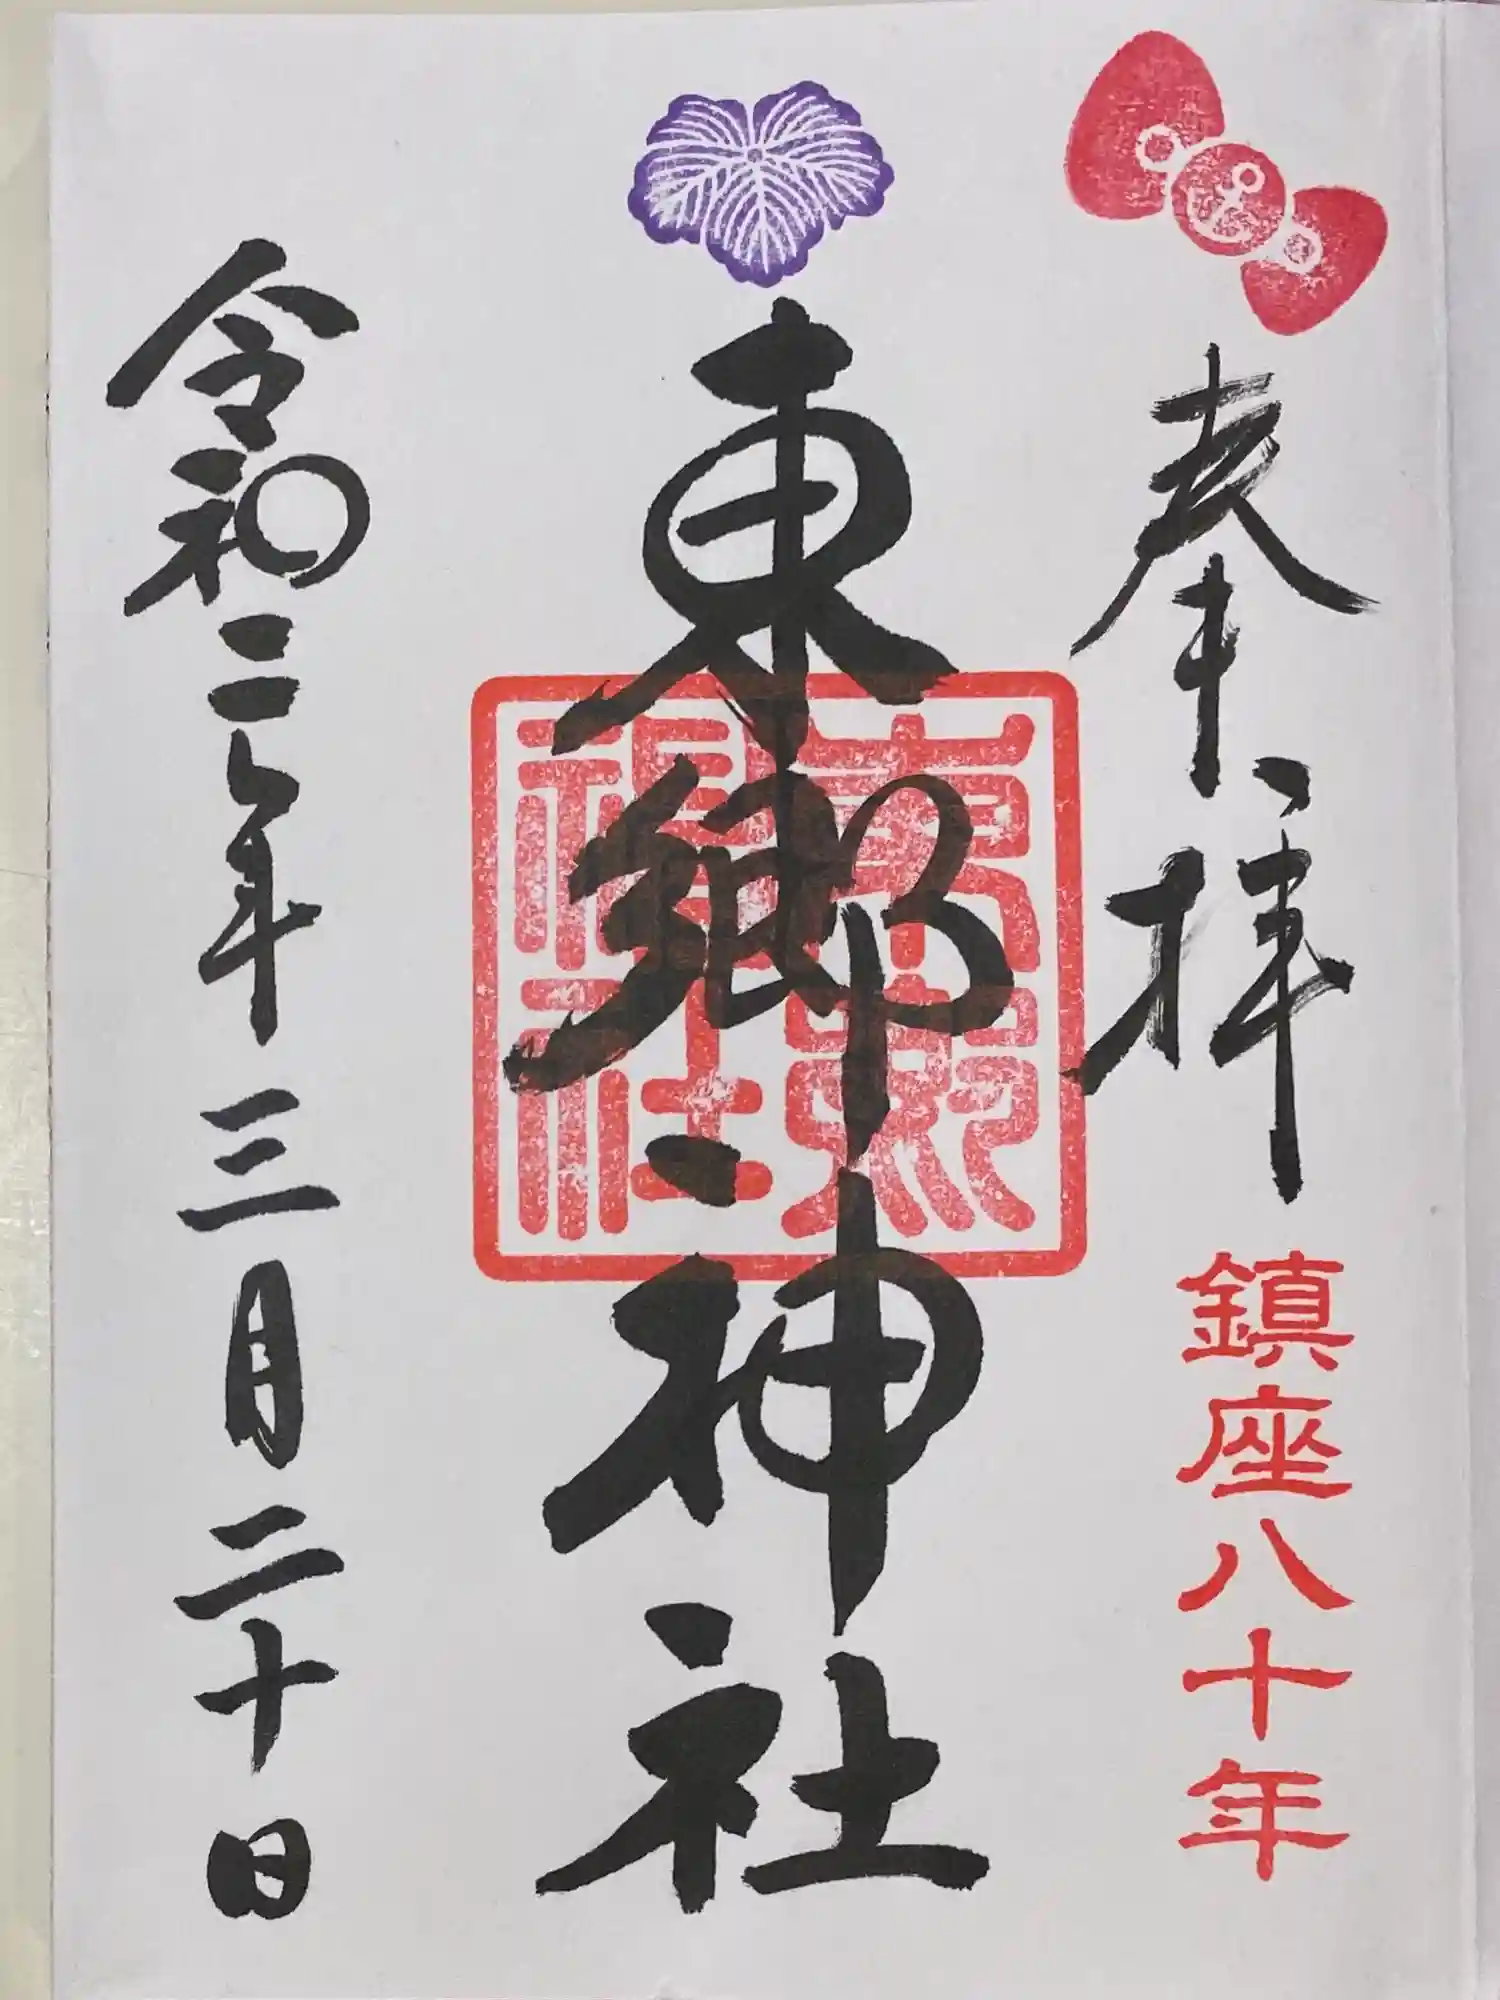 奉拝
鎮座八十年
東郷神社
東郷神社
令和二年三月二十日